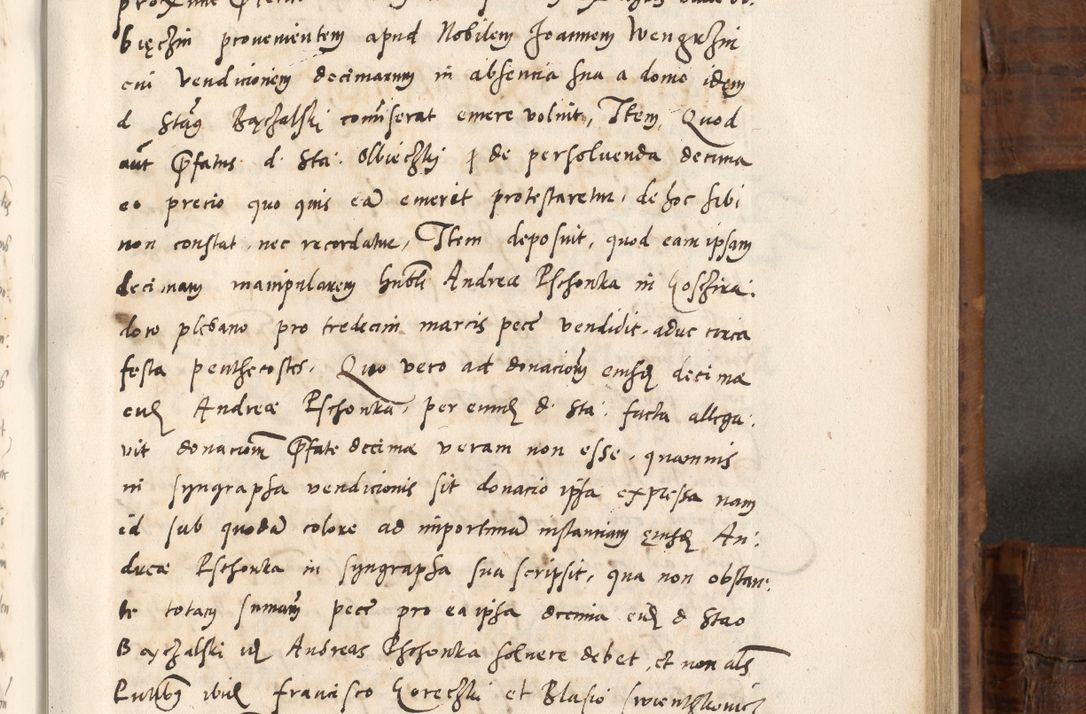 bięczin provenientem apud Nobilem Joannem Wengrzin
cui vendicionem decimarum in absentia sua a domo idem
d Stas Bączalski comiserat emere voluit, Item Quod
aut Pfatus d. Sta. Olbieczki de persoluenda decima
eo precio quo quis eā emerit protestaretur, de hoc sibi
non constat, nec recordatur, Item deposuit, quod eam ipsam
decimam manipularem Andreæ Pschonka in
doro plebano pro tredecim marcis pece vendidit, aduc circa
festa penthecostes. Quo vero ad donacionem eiusdem decimæ
eid Andreæ Pschonka, per eund d. Sta. facta allega:
vit donacionem Pfate decimæ veram non esse, quamuis
in syngrapha vendicionis sit donacio ipsa expressa nam
id sub quodā colore ad importunā instantiam eiusd An:
dreæ Pschonka in syngrapha sua scripsit, qua non obstan:
te totam sumam pece pro ea ipsa decima eid d Stao
Bączalski id Andreas Pschonka soluere debet, et non als
ibid Francisco Gorechki et Blasio